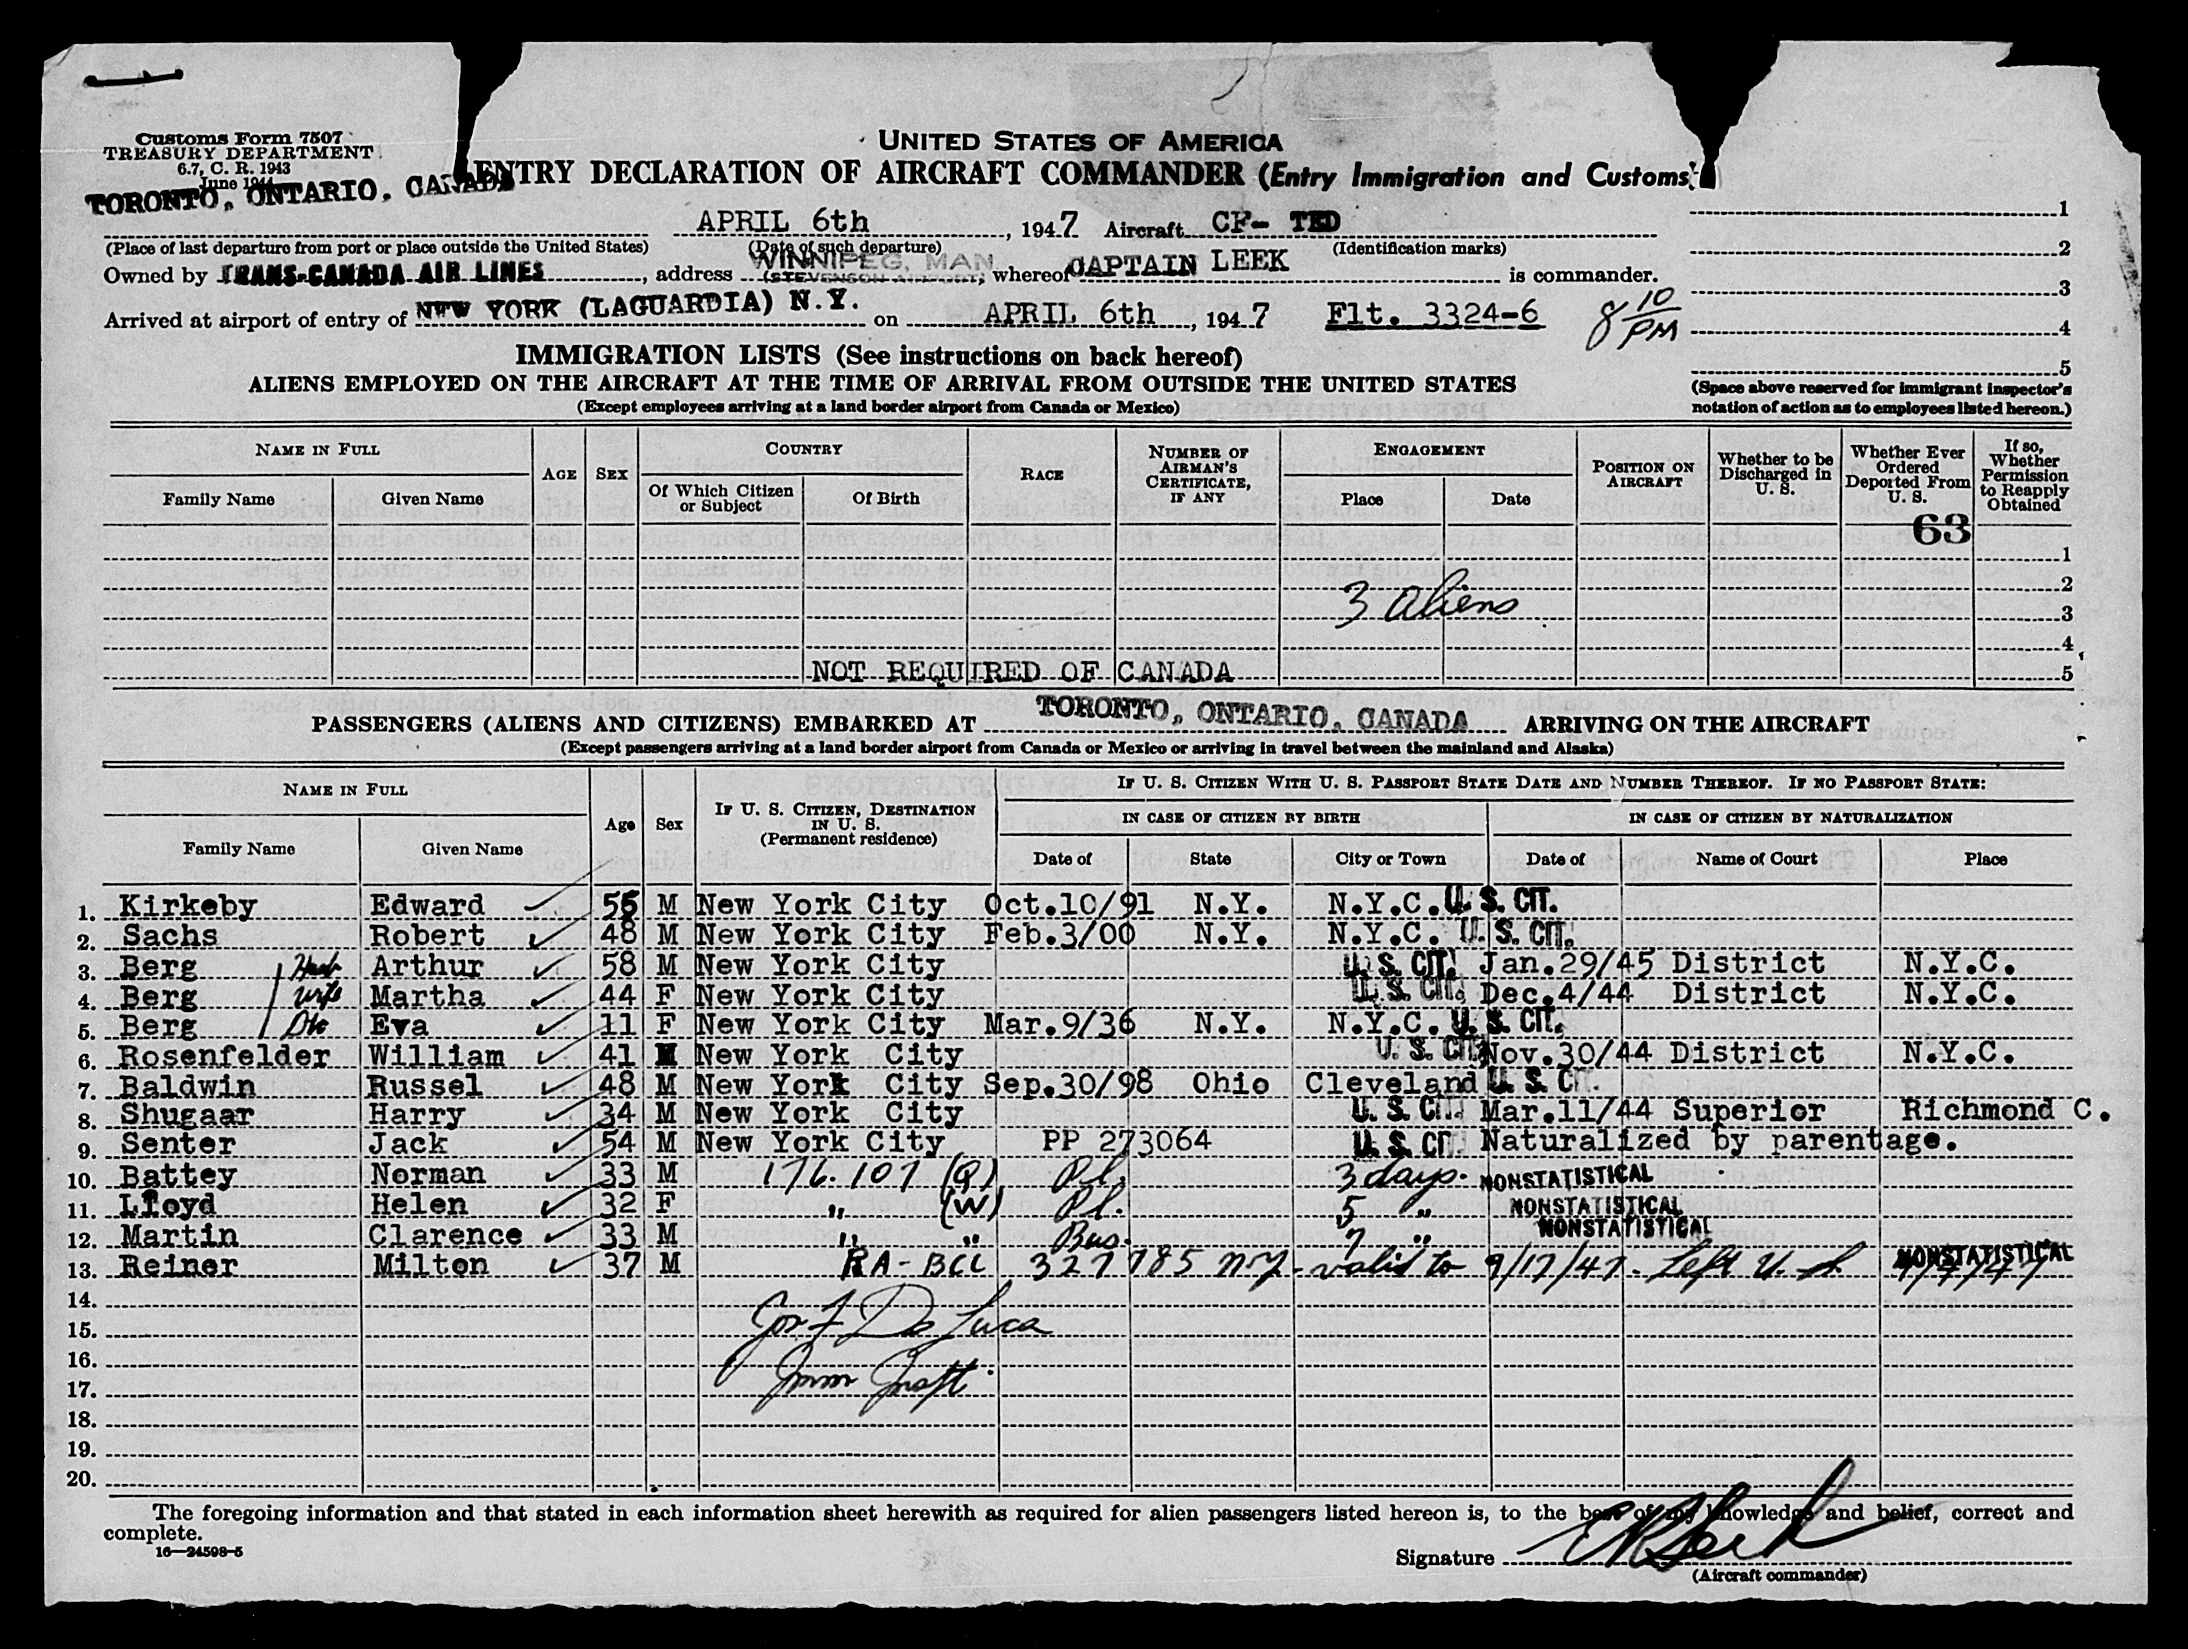 Customs Form 7507
TREASURY DEPARTMENT
6.7, C. R. 1943
June 1944
UNITED STATES OF AMERICA
ENTRY DECLARATION OF AIRCRAFT COMMANDER (Entry Immigration and Customs)
TORONTO, ONTARIO, CANADA
APRIL 6th, 1947 Aircraft CF- TED
(Place of last departure from port or place outside the United States) (Date of such departure) (Identification marks)
Owned by TRANS-CANADA AIR LINES, address WINNIPEG, MAN (STEVENSON AIRPORT), whereof CAPTAIN LEEK is commander.
Arrived at airport of entry of NEW YORK (LAGUARDIA) N.Y. on APRIL 6th, 1947 Flt. 3324-6 8 10 PM
1
2
3
4
5
(Space above reserved for immigrant inspector's
notation of action as to employees listed hereon.)
IMMIGRATION LISTS (See instructions on back hereof)
ALIENS EMPLOYED ON THE AIRCRAFT AT THE TIME OF ARRIVAL FROM OUTSIDE THE UNITED STATES
(Except employees arriving at a land border airport from Canada or Mexico)
NAME IN FULL
Family Name Given Name
AGE SEX
COUNTRY
Of Which Citizen or Subject Of Birth
RACE
NUMBER OF AIRMAN'S CERTIFICATE, IF ANY
ENGAGEMENT
Place Date
POSITION ON AIRCRAFT
Whether to be Discharged in U. S.
Whether Ever Ordered Deported From U. S.
If so, Whether Permission to Reapply Obtained
63
1
2
3 aliens
3
4
NOT REQUIRED OF CANADA 5
PASSENGERS (ALIENS AND CITIZENS) EMBARKED AT TORONTO, ONTARIO, CANADA ARRIVING ON THE AIRCRAFT
(Except passengers arriving at a land border airport from Canada or Mexico or arriving in travel between the mainland and Alaska)
NAME IN FULL
Family Name Given Name
Age Sex
IF U. S. CITIZEN, DESTINATION IN U. S.
(Permanent residence)
IF U. S. CITIZEN WITH U. S. PASSPORT STATE DATE AND NUMBER THEREOF. IF NO PASSPORT STATE:
IN CASE OF CITIZEN BY BIRTH IN CASE OF CITIZEN BY NATURALIZATION
Date of State City or Town Date of Name of Court Place
1. Kirkeby Edward 55 M New York City Oct.10/91 N.Y. N.Y.C. U. S. CIT.
2. Sachs Robert 48 M New York City Feb.3/00 N.Y. N.Y.C. U. S. CIT.
3. Berg Husb Arthur 58 M New York City U. S. CIT. Jan.29/45 District N.Y.C.
4. Berg wife Martha 44 F New York City U. S. CIT. Dec.4/44 District N.Y.C.
5. Berg Dto Eva 11 F New York City Mar.9/36 N.Y. N.Y.C. U. S. CIT.
6. Rosenfelder William 41 M New York City U. S. CIT. Nov.30/44 District N.Y.C.
7. Baldwin Russel 48 M New York City Sep.30/98 Ohio Cleveland U. S. CIT.
8. Shugaar Harry 34 M New York City U. S. CIT. Mar.11/44 Superior Richmond C.
9. Senter Jack 54 M New York City PP 273064 U. S. CIT. Naturalized by parentage.
10. Battey Norman 33 M 176.107 (Q) Pl. 3 days. NONSTATISTICAL
11. Lloyd Helen 32 F " (W) Pl. 5 " NONSTATISTICAL
12. Martin Clarence 33 M " " Bus. 7 " NONSTATISTICAL
13. Reiner Milton 37 M RA-BCC 327785 NY - valid to 9/17/47 - Left U. S. 4/4/47 NONSTATISTICAL
14.
15. Jos F De Luca
16.
17. Imm Inspt.
18.
19.
20.
The foregoing information and that stated in each information sheet herewith as required for alien passengers listed hereon is, to the best of my knowledge and belief, correct and
complete.
16—24598-5
Signature
(Aircraft commander)